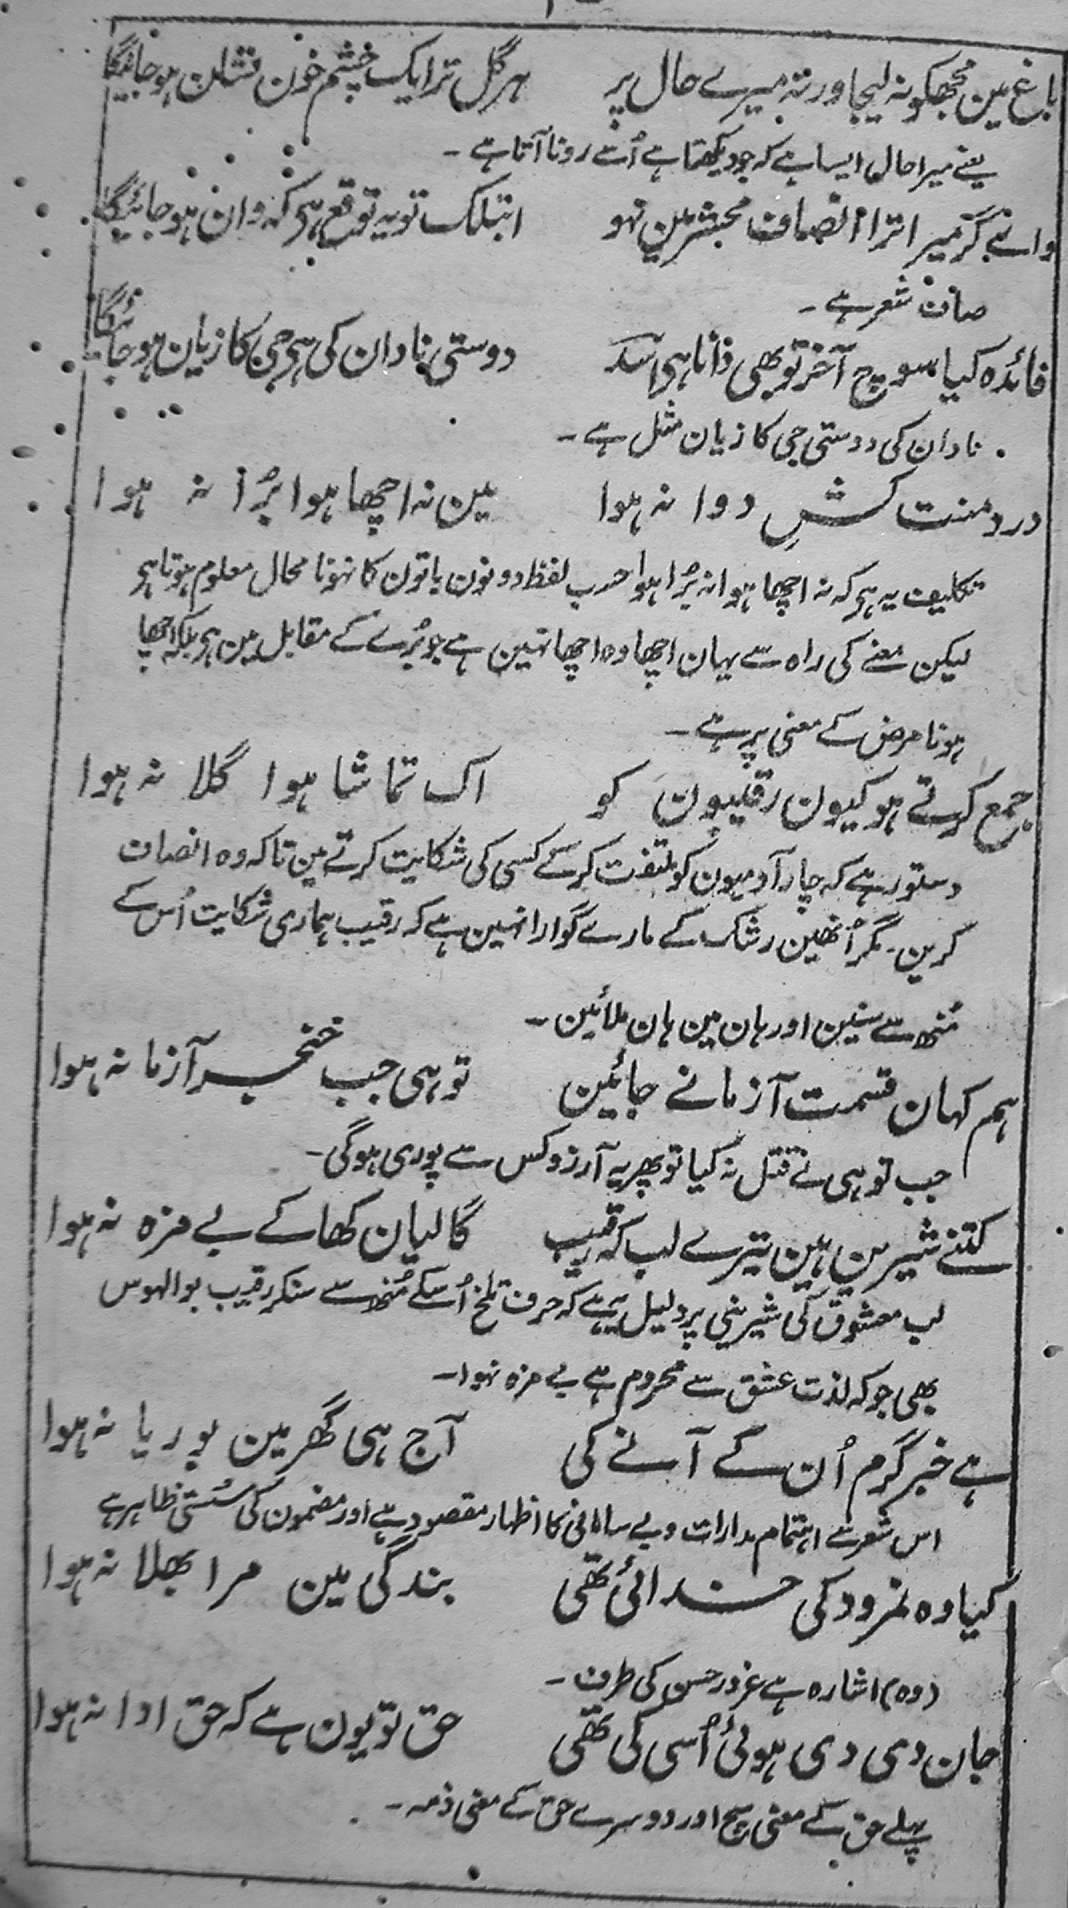 باغ مین مجھکو نہ لیجا ورنہ میرے حال پر ہر گل تر ایک چشم خون فشان ہو جائیگا
یعنے میرا حال ایسا ہے کہ جو دیکھتا ہے اُسے رونا آتا ہے ۔
واے گر میرا ترا انصاف محشر مین نہو ابتلک تو یہ توقع ہی کہ وان ہو جائیگا
صاف شعر ہے ۔
فائدہ کیا سوچ آخر تو بھی دانا ہی اسد دوستی نادان کی ہی جی کا زیان ہو جائیگا
نادان کی دوستی جی کا زیان مثل ہے ۔
درد منت کشِ دوا نہ ہوا مین نہ اچھا ہوا برُا نہ ہوا
تکلیف یہ ہی کہ نہ اچھا ہوا نہ بُرا ہوا حسب لفظ دونون باتون کا نہونا محال معلوم ہوتا ہی
لیکن معنے کی راہ سے یہان اچھا وہ اچھا نہین ہے جو بُرے کے مقابل مین ہی بلکہ اچھا
ہونا مرض کے معنی پر ہے ۔
جمع کرتے ہو کیون رقیبون کو اک تماشا ہوا گلا نہ ہوا
دستور ہے کہ چار آدمیون کو ملتفت کرکے کسی کی شکایت کرتے مین تاکہ وہ انصاف
کرین ۔ مگر اُنھین رشک کے مارے گوارا نہین ہے کہ رقیب ہماری شکایت اُس کے
مُنھ سے سنین اور ہان مین ہان ملائین ۔
ہم کہان قسمت آزمانے جائین تو ہی جب خنجر آزما نہ ہوا
جب تو ہی نے قتل نہ کیا تو پھر یہ آرزو کس سے پوری ہوگی ۔
کتنے شیرین ہین تیرے لب کہ رقیب گالیان کھا کے بے مزہ نہ ہوا
لب معشوق کی شیرینی پر دلیل یہ ہے کہ حرف تلخ اُسکے مُنھ سے سنکر رقیب بوالہوس
بھی جو کہ لذت عشق سے محروم ہے بے مزہ نہوا ۔
ہے خبر گرم اُن کے آنے کی آج ہی گھر مین بوریا نہ ہوا
اس شعر سے اہتمام مدارات و بے سامانی کا اظہار مقصود ہے اور مضمون کی سُستی ظاہر ہے
کیا وہ نمرود کی خدائی تھی بندگی مین مرا بھلا نہ ہوا
(وہ) اشارہ ہے غرور حسن کی طرف ۔
جان دی دی ہوئی اُسی کی تھی حق تو یون ہے کہ حق ادا نہ ہوا
پہلے حق کے معنی سچ اور دوسرے حق کے معنی ذمہ ۔